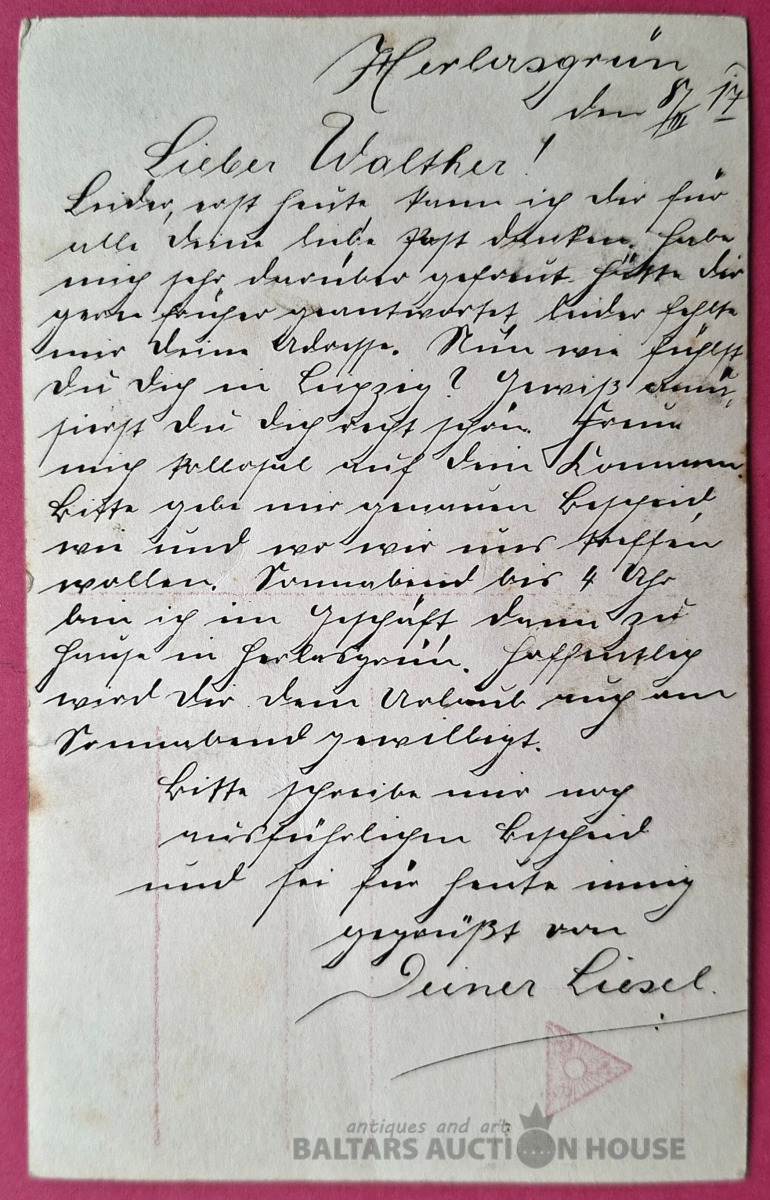 Herlasgrün
den 8/III 17
Lieber Walther!
Leider, erst heute kann ich dir für
alle deine liebe Post danken. Habe
mich sehr darüber gefreut. Hätte dir
gern früher geantwortet leider fehlte
mir deine Adresse. Nun wie fühlst
du dich in Leipzig? Gewiß amü-
sierst du dich recht schön. Freue
mich kollosal auf dein Kommen.
Bitte gebe mir genauen Bescheid,
wie und wo wir uns treffen
wollen. Sonnabend bis 4 Uhr
bin ich im Geschäft dann zu
Hause in Herlasgrün. Hoffentlich
wird dir dein Urlaub auch am
Sonnabend gewilligt.
Bitte schreibe mir noch
ausführlichen Bescheid
und sei für heute innig
gegrüßt von
Deiner Liesel.
antiques and art
BALTARS AUCTION HOUSE